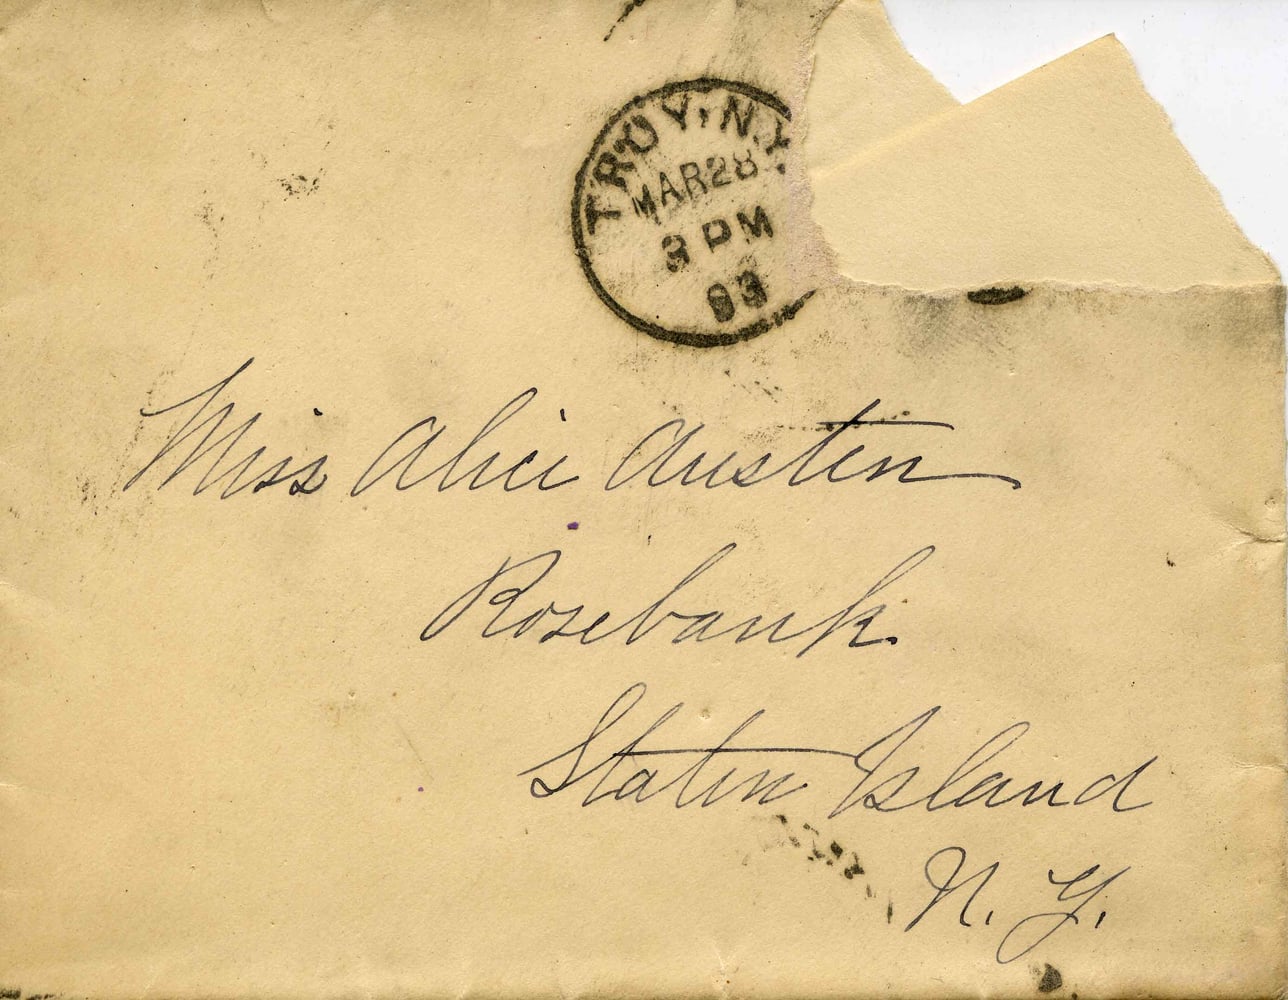 TROY, N.Y.
MAR 28
8 PM
93
Miss Alice Austen
Rosebank.
Staten Island
N. Y.